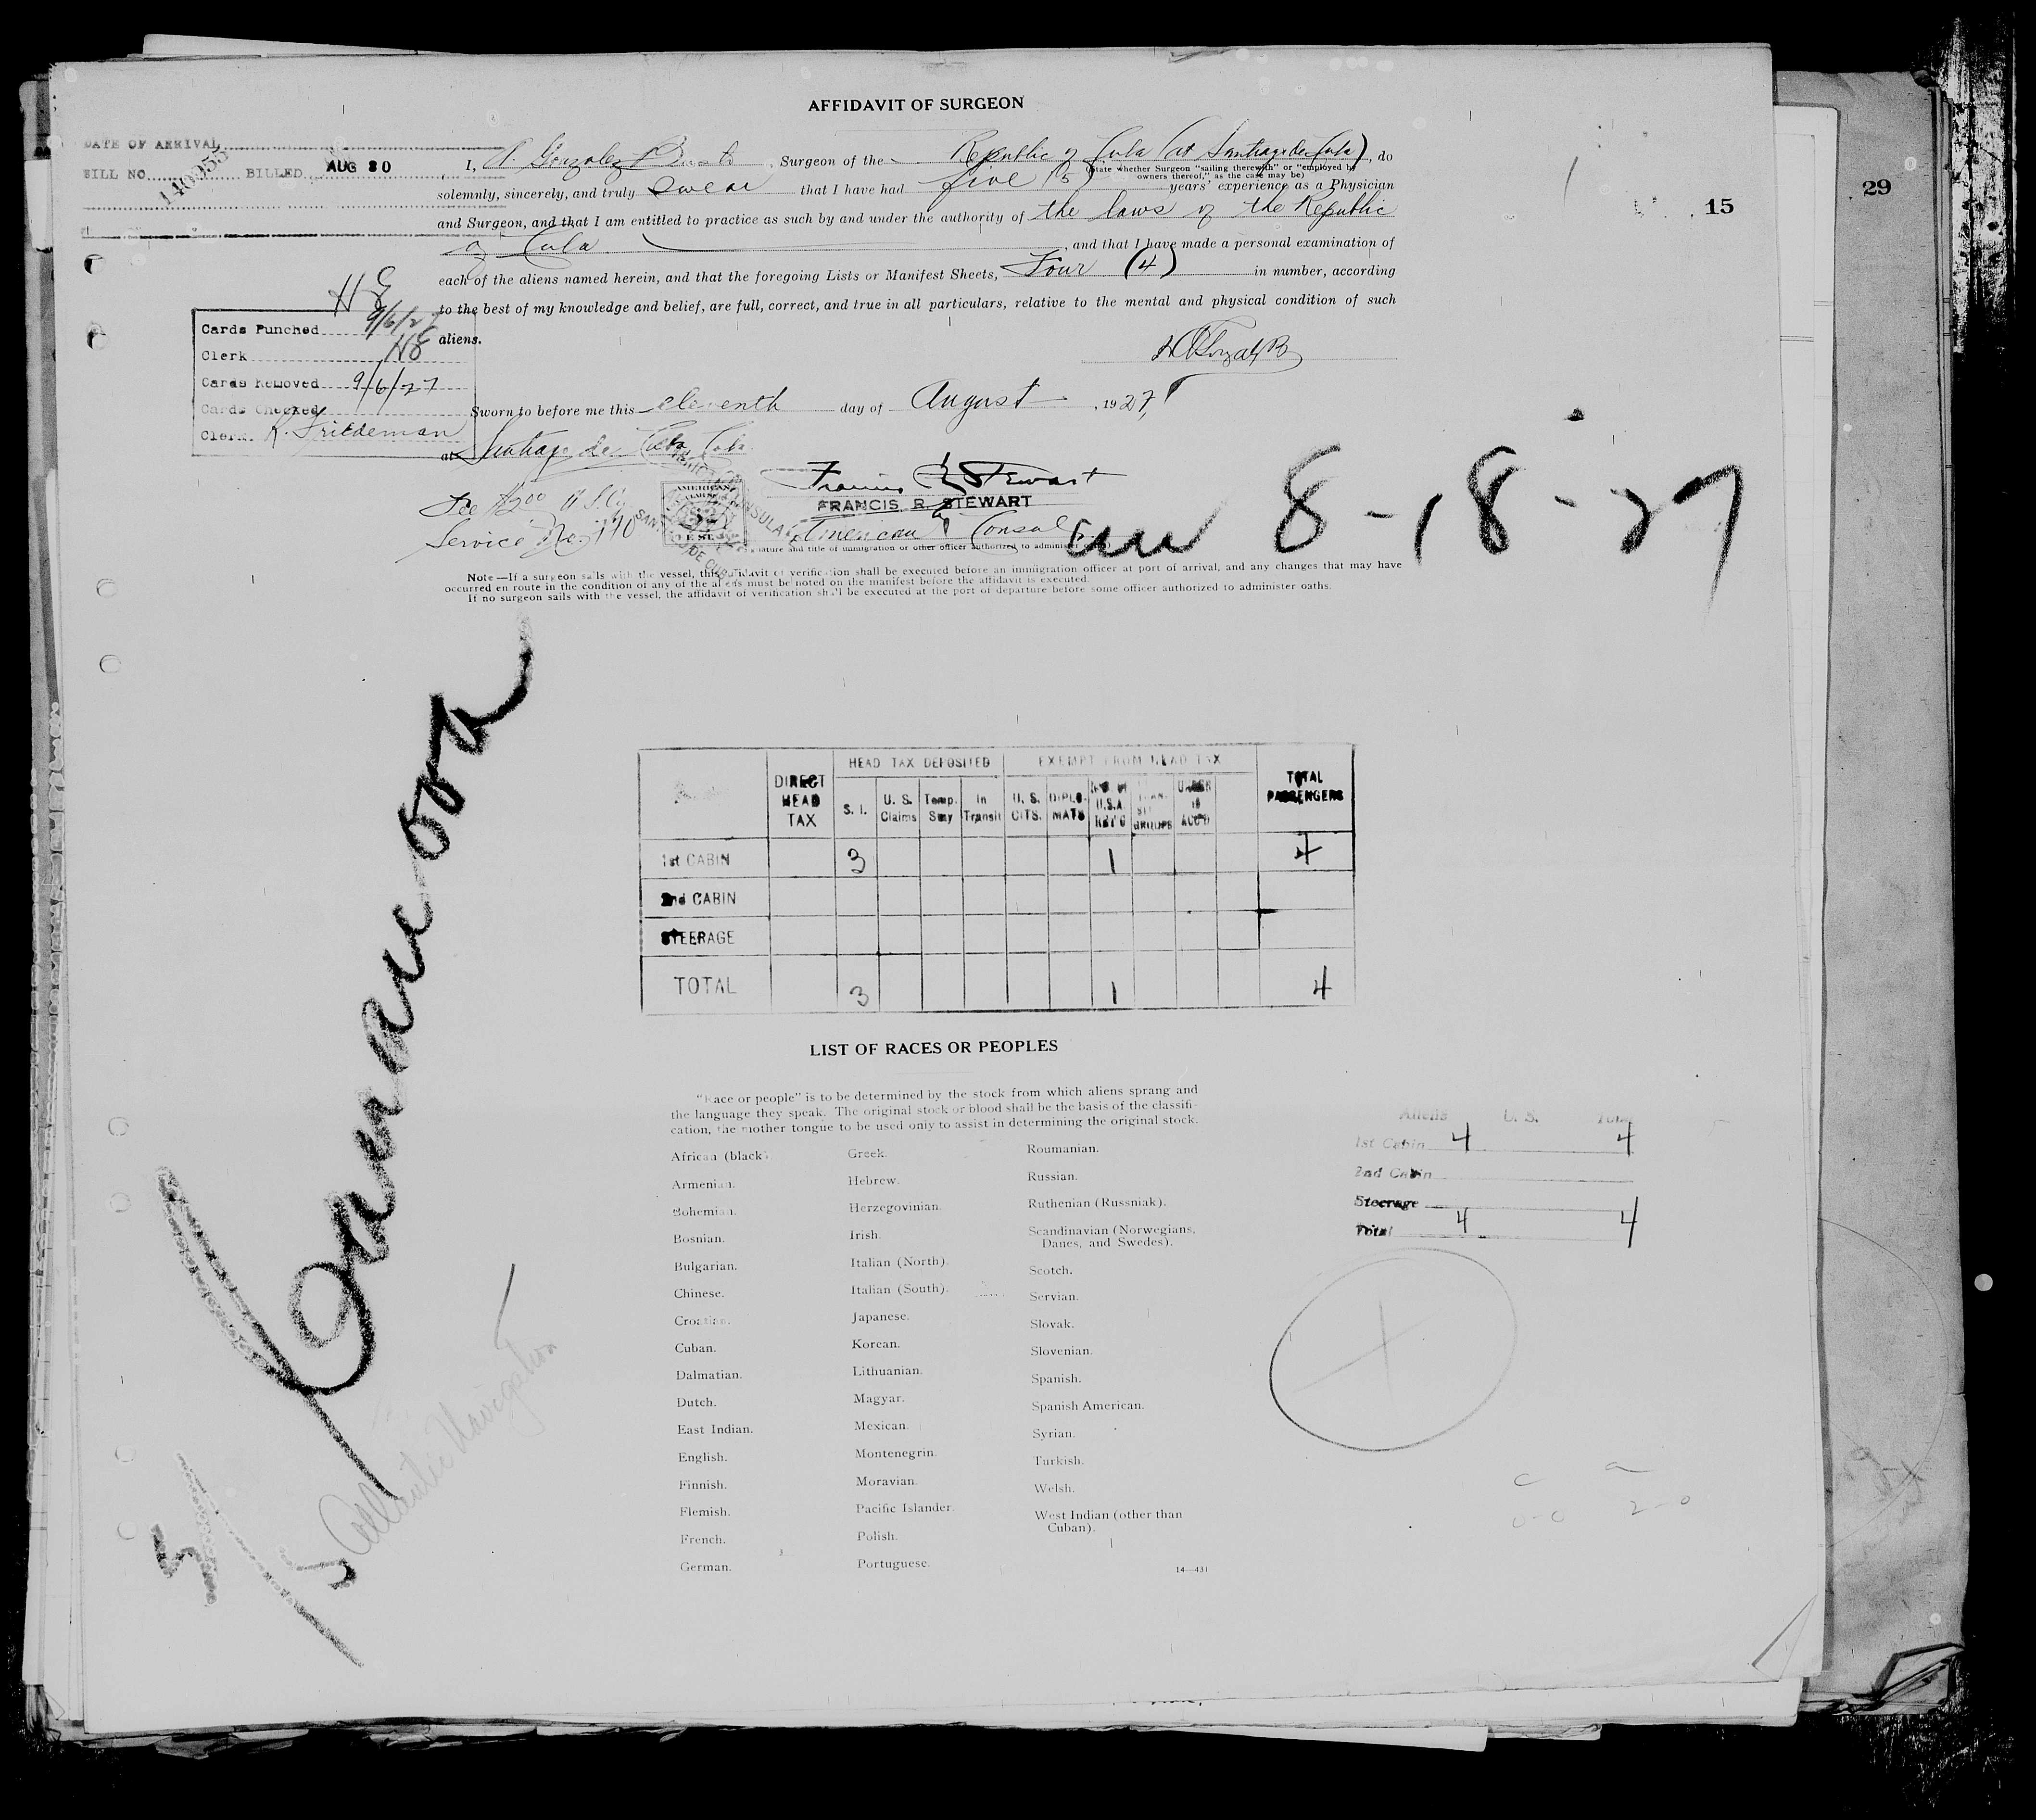 AFFIDAVIT OF SURGEON
DATE OF ARRIVAL
BILL NO. 140955 BILLED AUG 30
I, A. Gonzalez , Surgeon of the Republic of Cuba (at Santiago de Cuba), do
(State whether Surgeon "sailing therewith" or "employed by
owners thereof," as the case may be)
solemnly, sincerely, and truly swear that I have had five (5) years' experience as a Physician
and Surgeon, and that I am entitled to practice as such by and under the authority of the laws of the Republic
of Cuba , and that I have made a personal examination of
each of the aliens named herein, and that the foregoing Lists or Manifest Sheets, Four (4) in number, according
to the best of my knowledge and belief, are full, correct, and true in all particulars, relative to the mental and physical condition of such
aliens.
15
29
HE
Cards Punched 9/6/27
Clerk HE
Cards Removed 9/6/27
Cards Checked
Clerk. K. Friedeman
Sworn to before me this eleventh day of August , 1927,
at Santiago de Cuba, Cuba.
Francis R Stewart
FRANCIS R. STEWART
American Consul
Fee $2.00 U.S.Cy
Service No. 1710
AMERICAN
8-18-27
(Signature and title of immigration or other officer authorized to administer
Note—If a surgeon sails with the vessel, this affidavit of verification shall be executed before an immigration officer at port of arrival, and any changes that may have
occurred en route in the condition of any of the aliens must be noted on the manifest before the affidavit is executed.
If no surgeon sails with the vessel, the affidavit of verification shall be executed at the port of departure before some officer authorized to administer oaths.
DIRECT HEAD TAX HEAD TAX DEPOSITED EXEMPT FROM HEAD TAX TOTAL PASSENGERS
S. I. U. S. Claims Temp. Stay In Transit U. S. CITS. DIPLO- MATS U.S.A. GROUPS UNDER 16 ACC'D
1st CABIN 3 1 4
2nd CABIN
STEERAGE
TOTAL 3 1 4
LIST OF RACES OR PEOPLES
"Race or people" is to be determined by the stock from which aliens sprang and
the language they speak. The original stock or blood shall be the basis of the classifi-
cation, the mother tongue to be used only to assist in determining the original stock.
African (black).
Armenian.
Bohemian.
Bosnian.
Bulgarian.
Chinese.
Croatian.
Cuban.
Dalmatian.
Dutch.
East Indian.
English.
Finnish.
Flemish.
French.
German.
Greek.
Hebrew.
Herzegovinian.
Irish.
Italian (North).
Italian (South).
Japanese.
Korean.
Lithuanian.
Magyar.
Mexican.
Montenegrin.
Moravian.
Pacific Islander.
Polish.
Portuguese.
Roumanian.
Russian.
Ruthenian (Russniak).
Scandinavian (Norwegians,
Danes, and Swedes).
Scotch.
Servian.
Slovak.
Slovenian.
Spanish.
Spanish American.
Syrian.
Turkish.
Welsh.
West Indian (other than
Cuban).
14—431
Aliens U. S. Total
1st Cabin 4 4
2nd Cabin
Steerage
Total 4 4
Atlantic Navigation